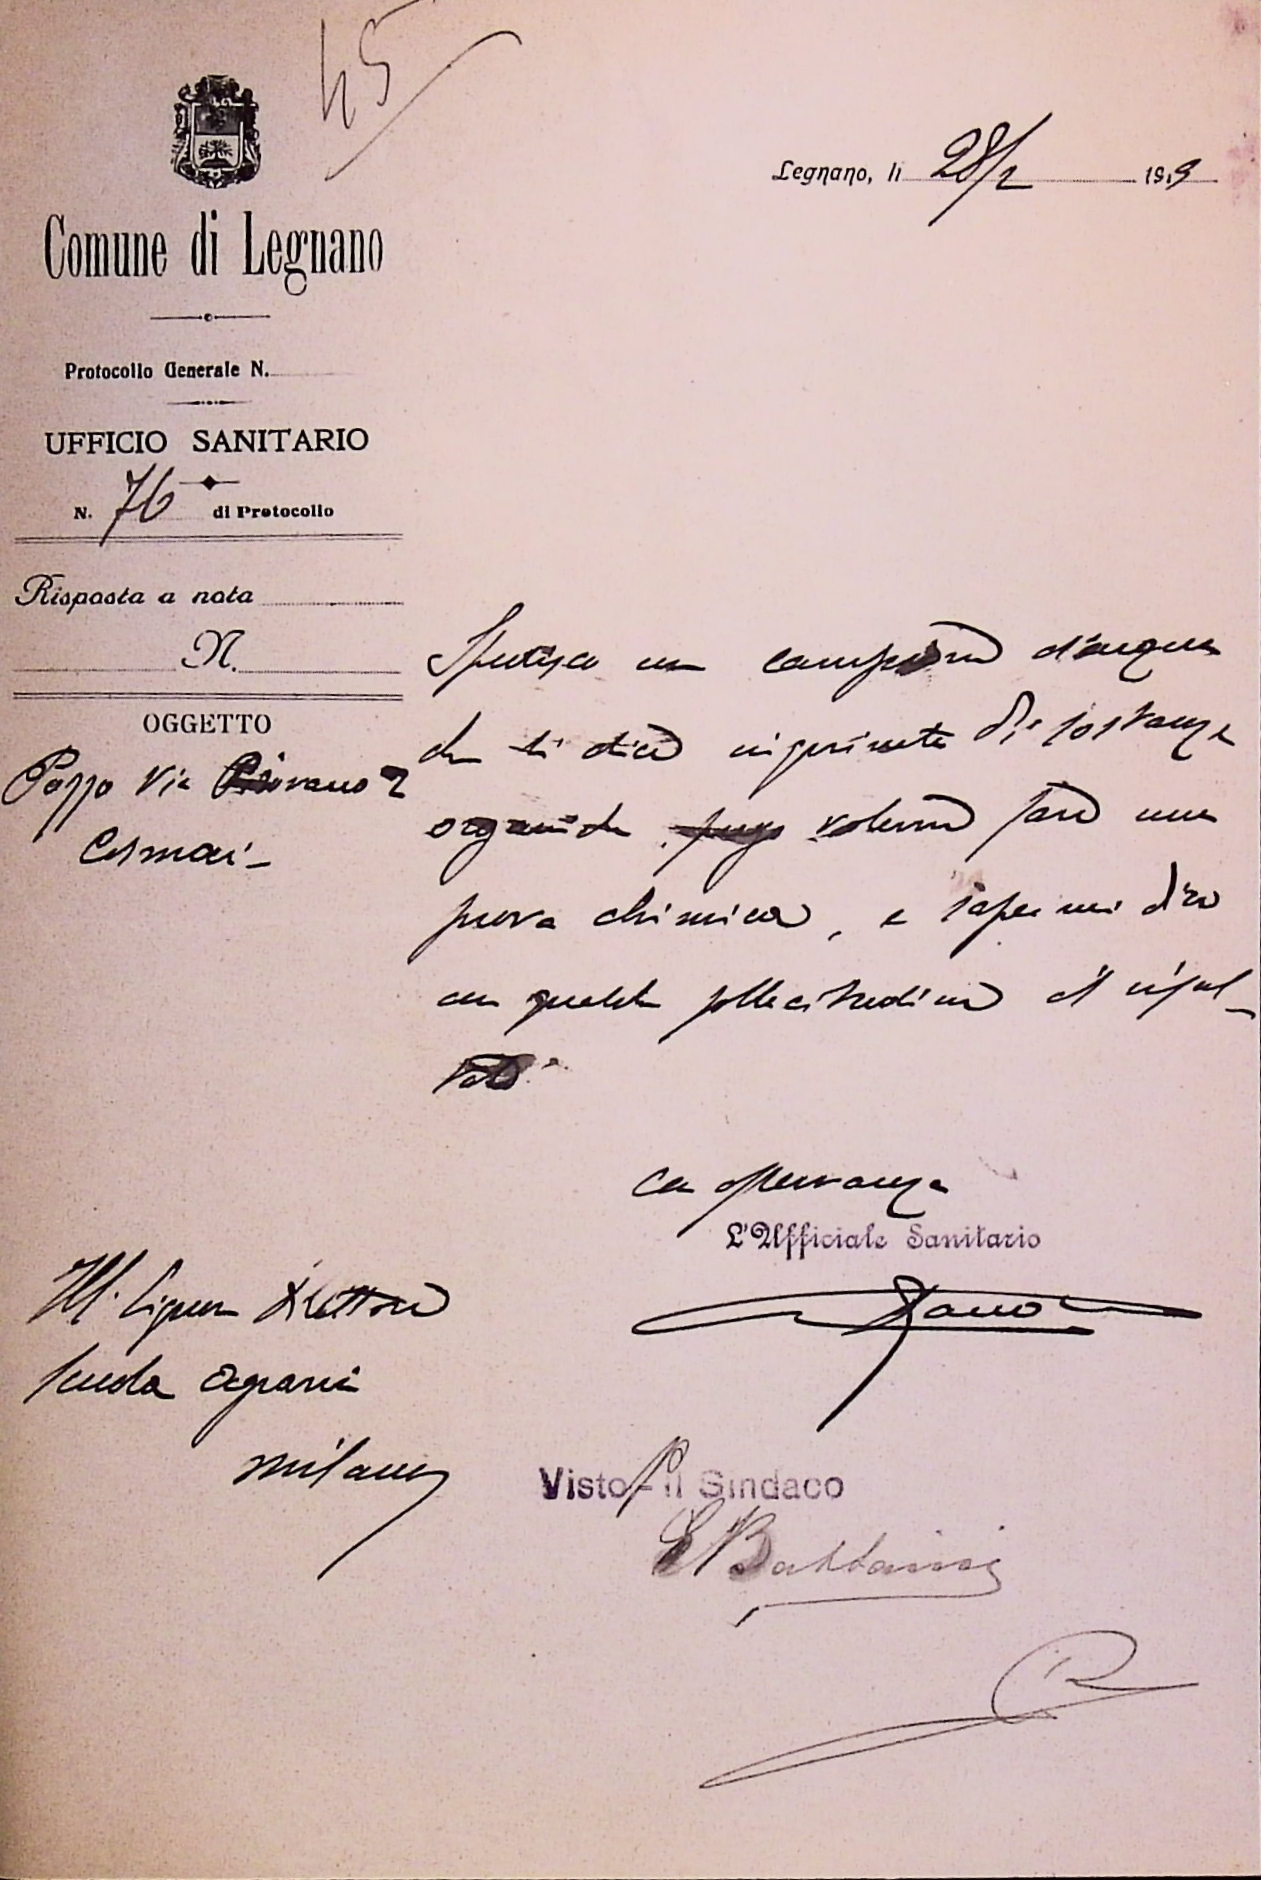 45
Legnano, li 28/2 1919
Comune di Legnano
Protocollo Generale N.
UFFICIO SANITARIO
N. 76 di Protocollo
Risposta a nota
N.
OGGETTO
Pozzo Via
Spedisco un campione d'acqua
che si dice inquinata di sostanze
organiche, volerne fare una
prova chimica, e sapermi dire
con quella sollecitudine il risul-
tato
Con osservanza
L'Ufficiale Sanitario
Ill. Signor Direttore
Scuola Agraria
Milano
Visto - Il Sindaco